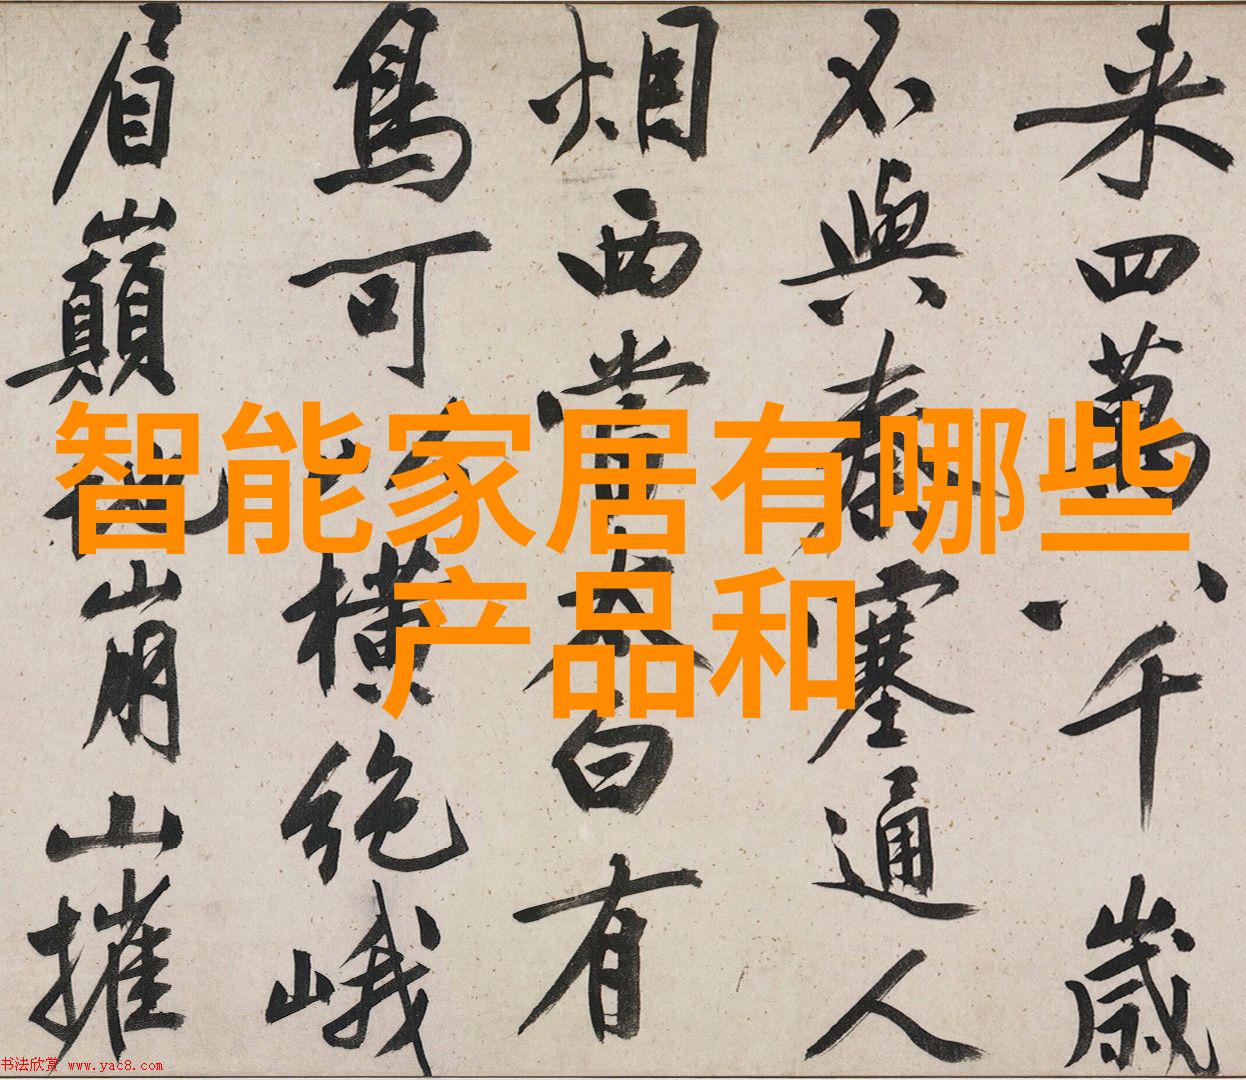 来四萬八千歲
不與秦塞通人
烟西當太白有
鳥可以橫絶峨
眉巔地崩山摧
智能家居有哪些
产品和
书法欣赏 www.yac8.com